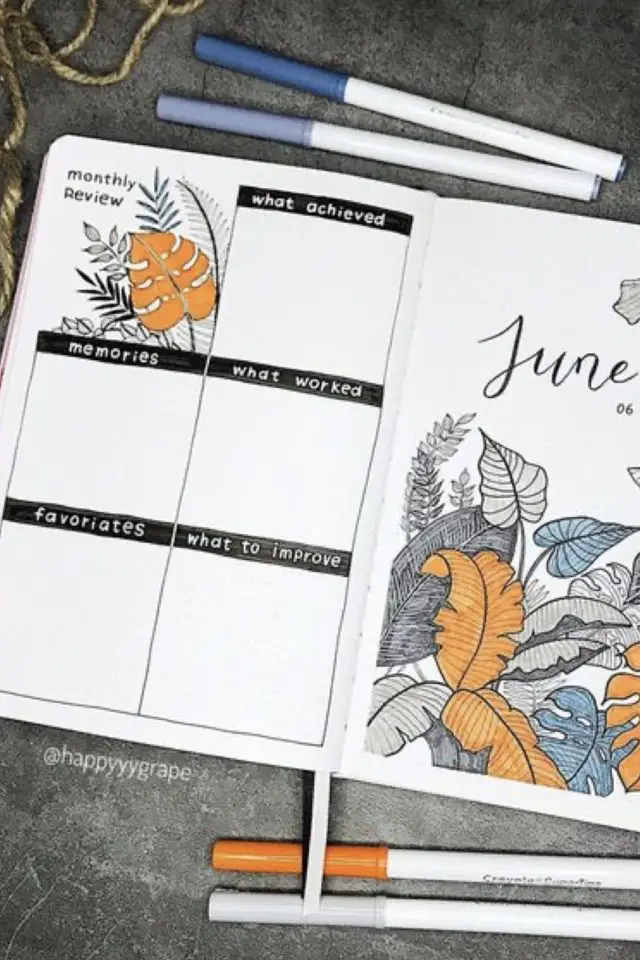 monthly
Review
what achieved
memories
what worked
favoriates
what to improve
June
06
@happyyygrape
Crayola SuperTips